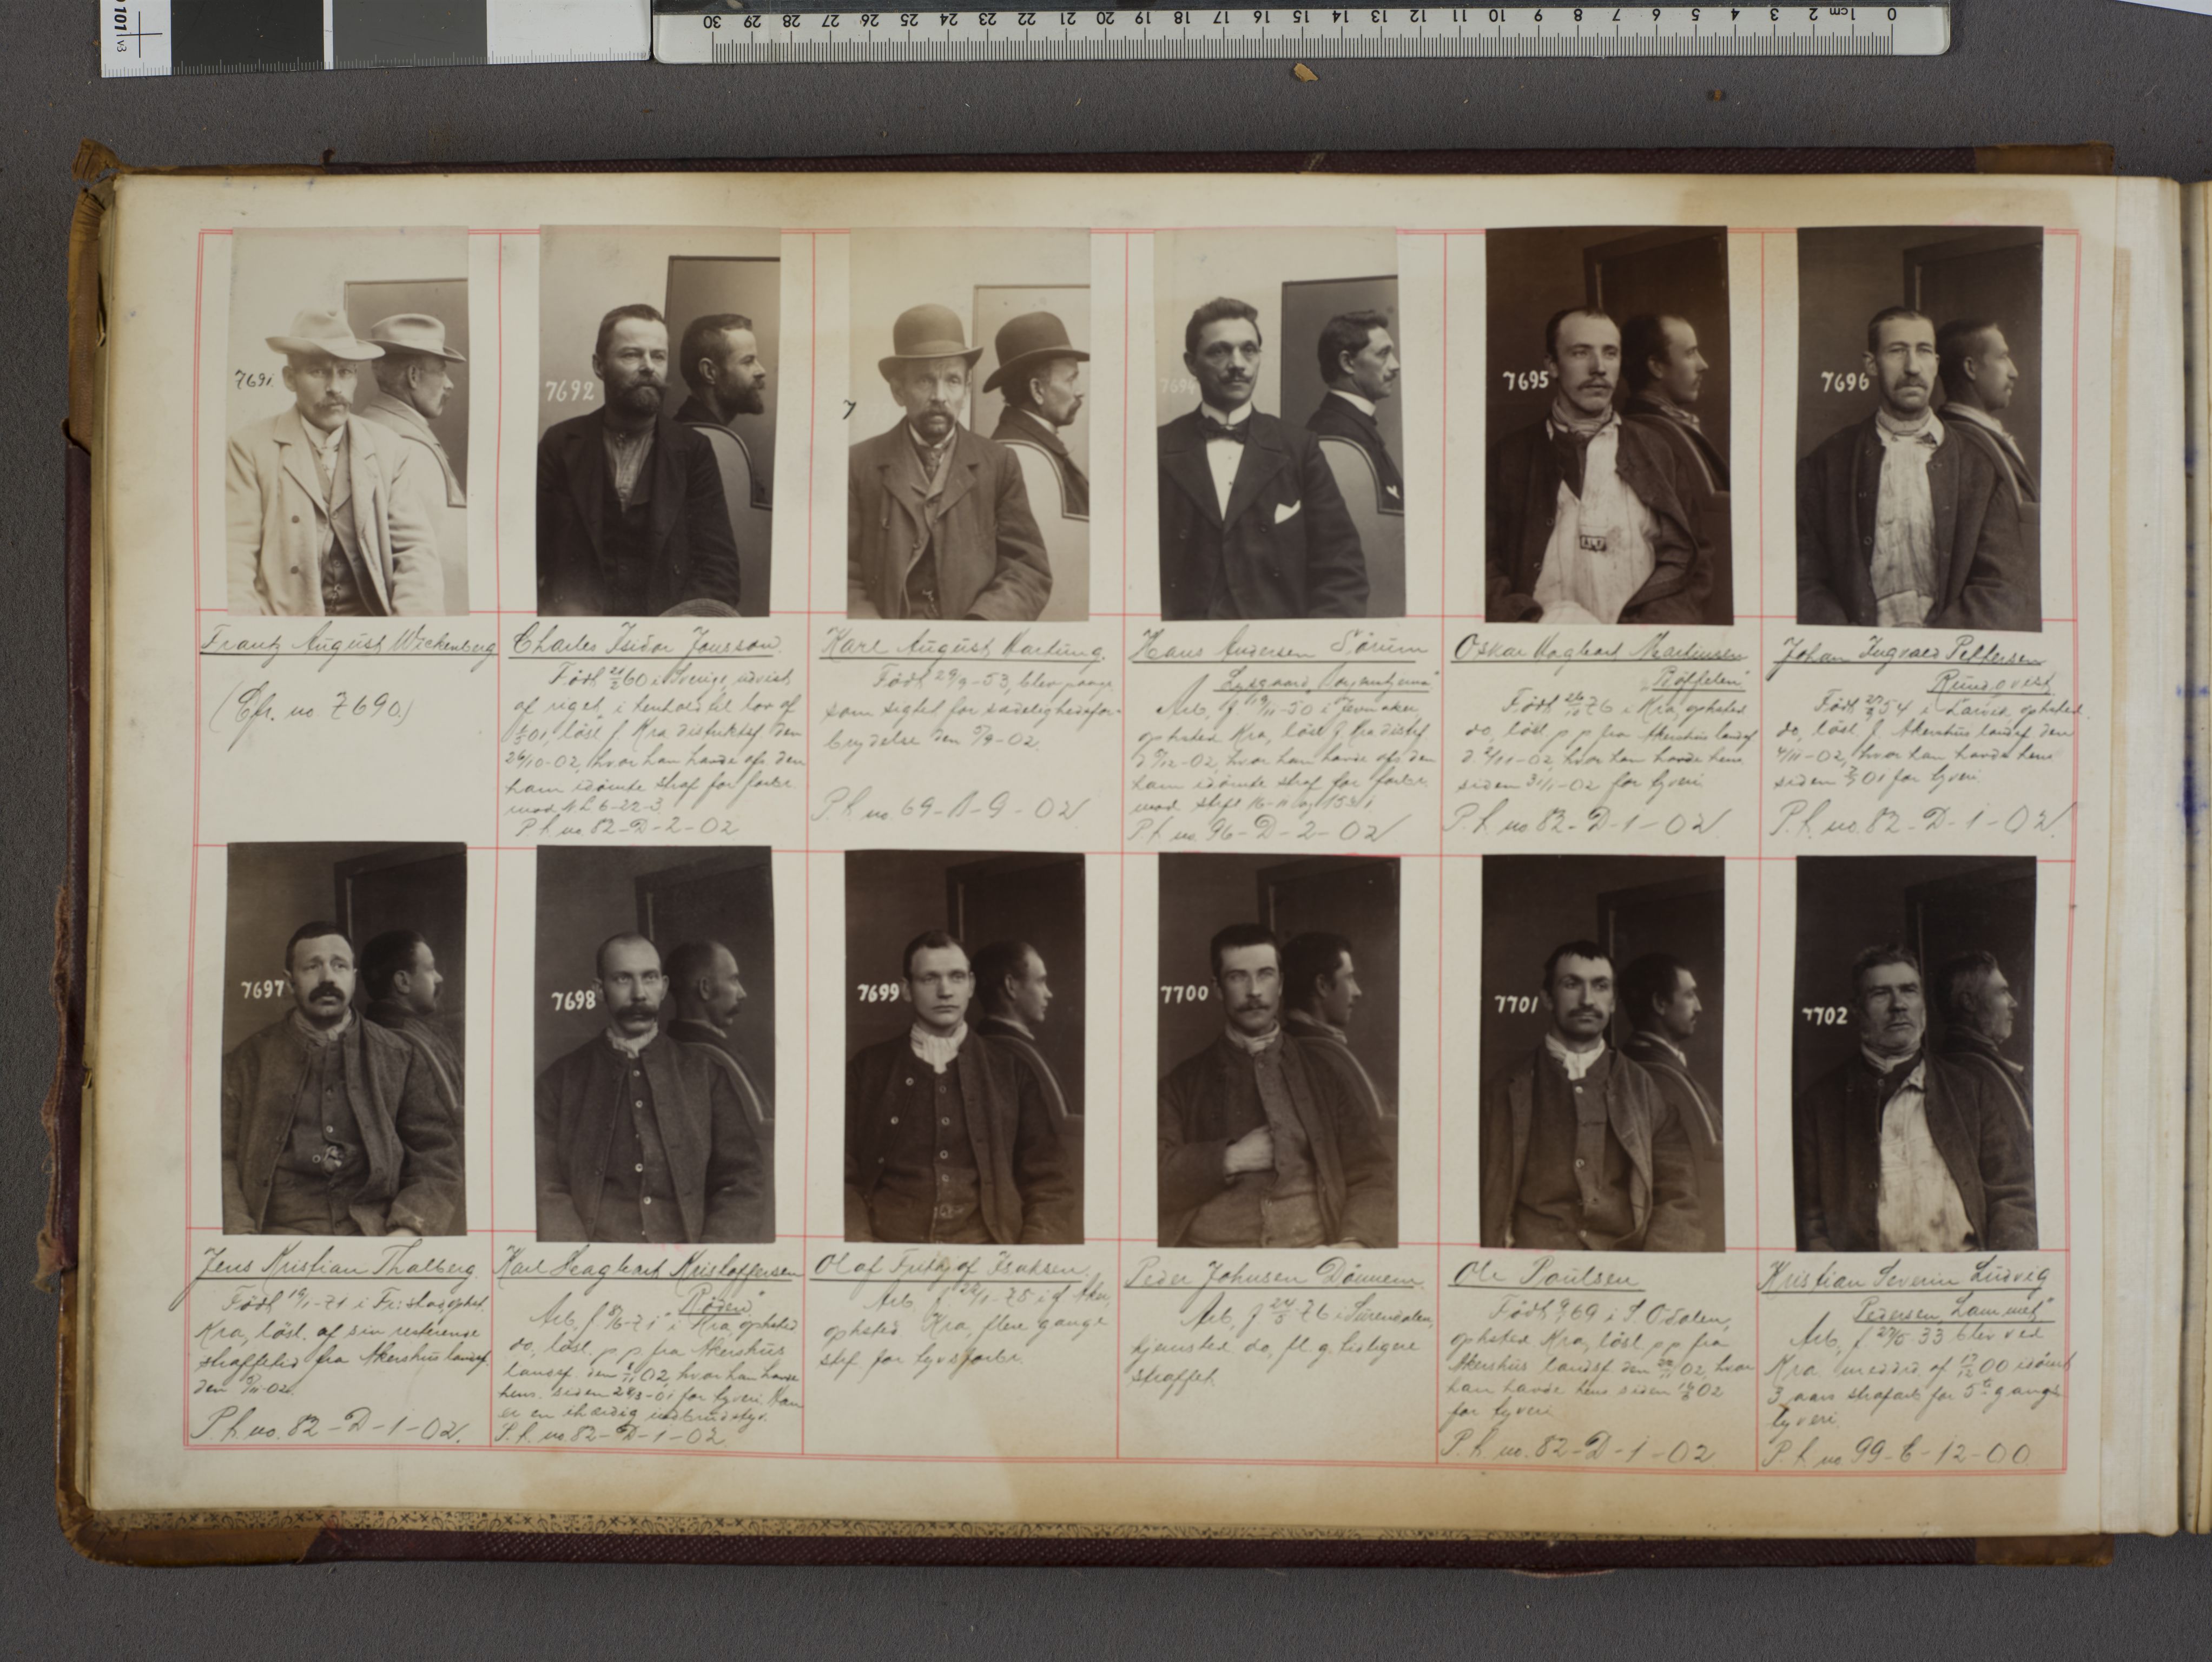 101 v3
0 1cm 2 3 4 5 6 7 8 9 10 11 12 13 14 15 16 17 18 19 20 21 22 23 24 25 26 27 28 29 30
7691.
7692
7
7694
7695
7696
Frantz August Wickenberg
(Cfr. no 7690.)
Charles Isidor Jonsson.
Född 21/2 60 i Sverige, udvist
af riget i henhold til lov af
01, løsl. f. Kra distriktsf. den
26/10-02, hvor han havde afs. den
ham idømte straf for forbr.
mod N L 6-22-3
P.k. no 82-D-2-02
Karl August Hartung.
Född 29/9-53, blev paagr.
som sigtet for sædelighedsfor-
brydelse den 5/9-02.
P.k. no. 69-A-9-02
Hans Andersen Sørum
Arb. f. 19/11-50 i
ophsted Kra, løsl f. Kra distsf
d. 5/12-02, hvor han havde afs den
ham idømte straf for forbr.
mod strfl 16-11 og 15
P.k. no. 96-D-2-02
Oskar Hagbart Martinsen
"Røffelen"
Född 26/10 76 i Kra, ophsted
do, løsl. p p fra Akershus landsf
d. 2/11-02, hvor han havde hens
siden 31/1-02 for tyveri
P.k. no 82-D-1-02
Johan Ingvald Pettersen
Rundqvist
Född 54 i Larvik, ophsted
do, løsl. f. Akershus landsf den
4/11-02, hvor han havde hens
siden 01 for tyveri
P.k. no. 82-D-1-02.
7697
7698
7699
7700
7701
7702
Jens Kristian Thalberg.
Född 19/1-71 i Fr:stad, ophst.
Kra, løsl. af sin resterende
straffetid fra Akershus landsf.
den 5/11-02.
P.k. no. 82-D-1-02.
Karl Heagbart Kristoffersen
"Røden"
Arb. f. 8/6-71 i Kra, ophsted
do, løsl. p p fra Akershus
landsf. den 02, hvor han havde
hens. siden 28/3-01 for tyveri. Han
er en ihærdig indbrudstyv.
P.k. no 82-D-1-02
Olaf Fritjof Isaksen.
Arb. f. 22/1-75 i Aker,
ophsted Kra, flere gange
stf. for tyvsforbr.
Peder Johnsen Dønnem
Arb. f. 24/5 76 i Surendalen,
hjemsted do, fl. g. tidligere
straffet
Ole Poulsen
Född 69 i S. Odalen,
ophsted Kra, løsl. p p fra
Akershus landsf den 22/11 02, hvor
han havde hens siden 02
for tyveri
P.k. no. 82-D-1-02
Kristian Severin Ludvig
Pedersen "Lammet"
Arb. f. 27/6 33 blev ved
Kra meddrd af 17/12 00 idømt
3 aars strafarb for 5te gangs
tyveri.
P.k. no 99-C-12-00